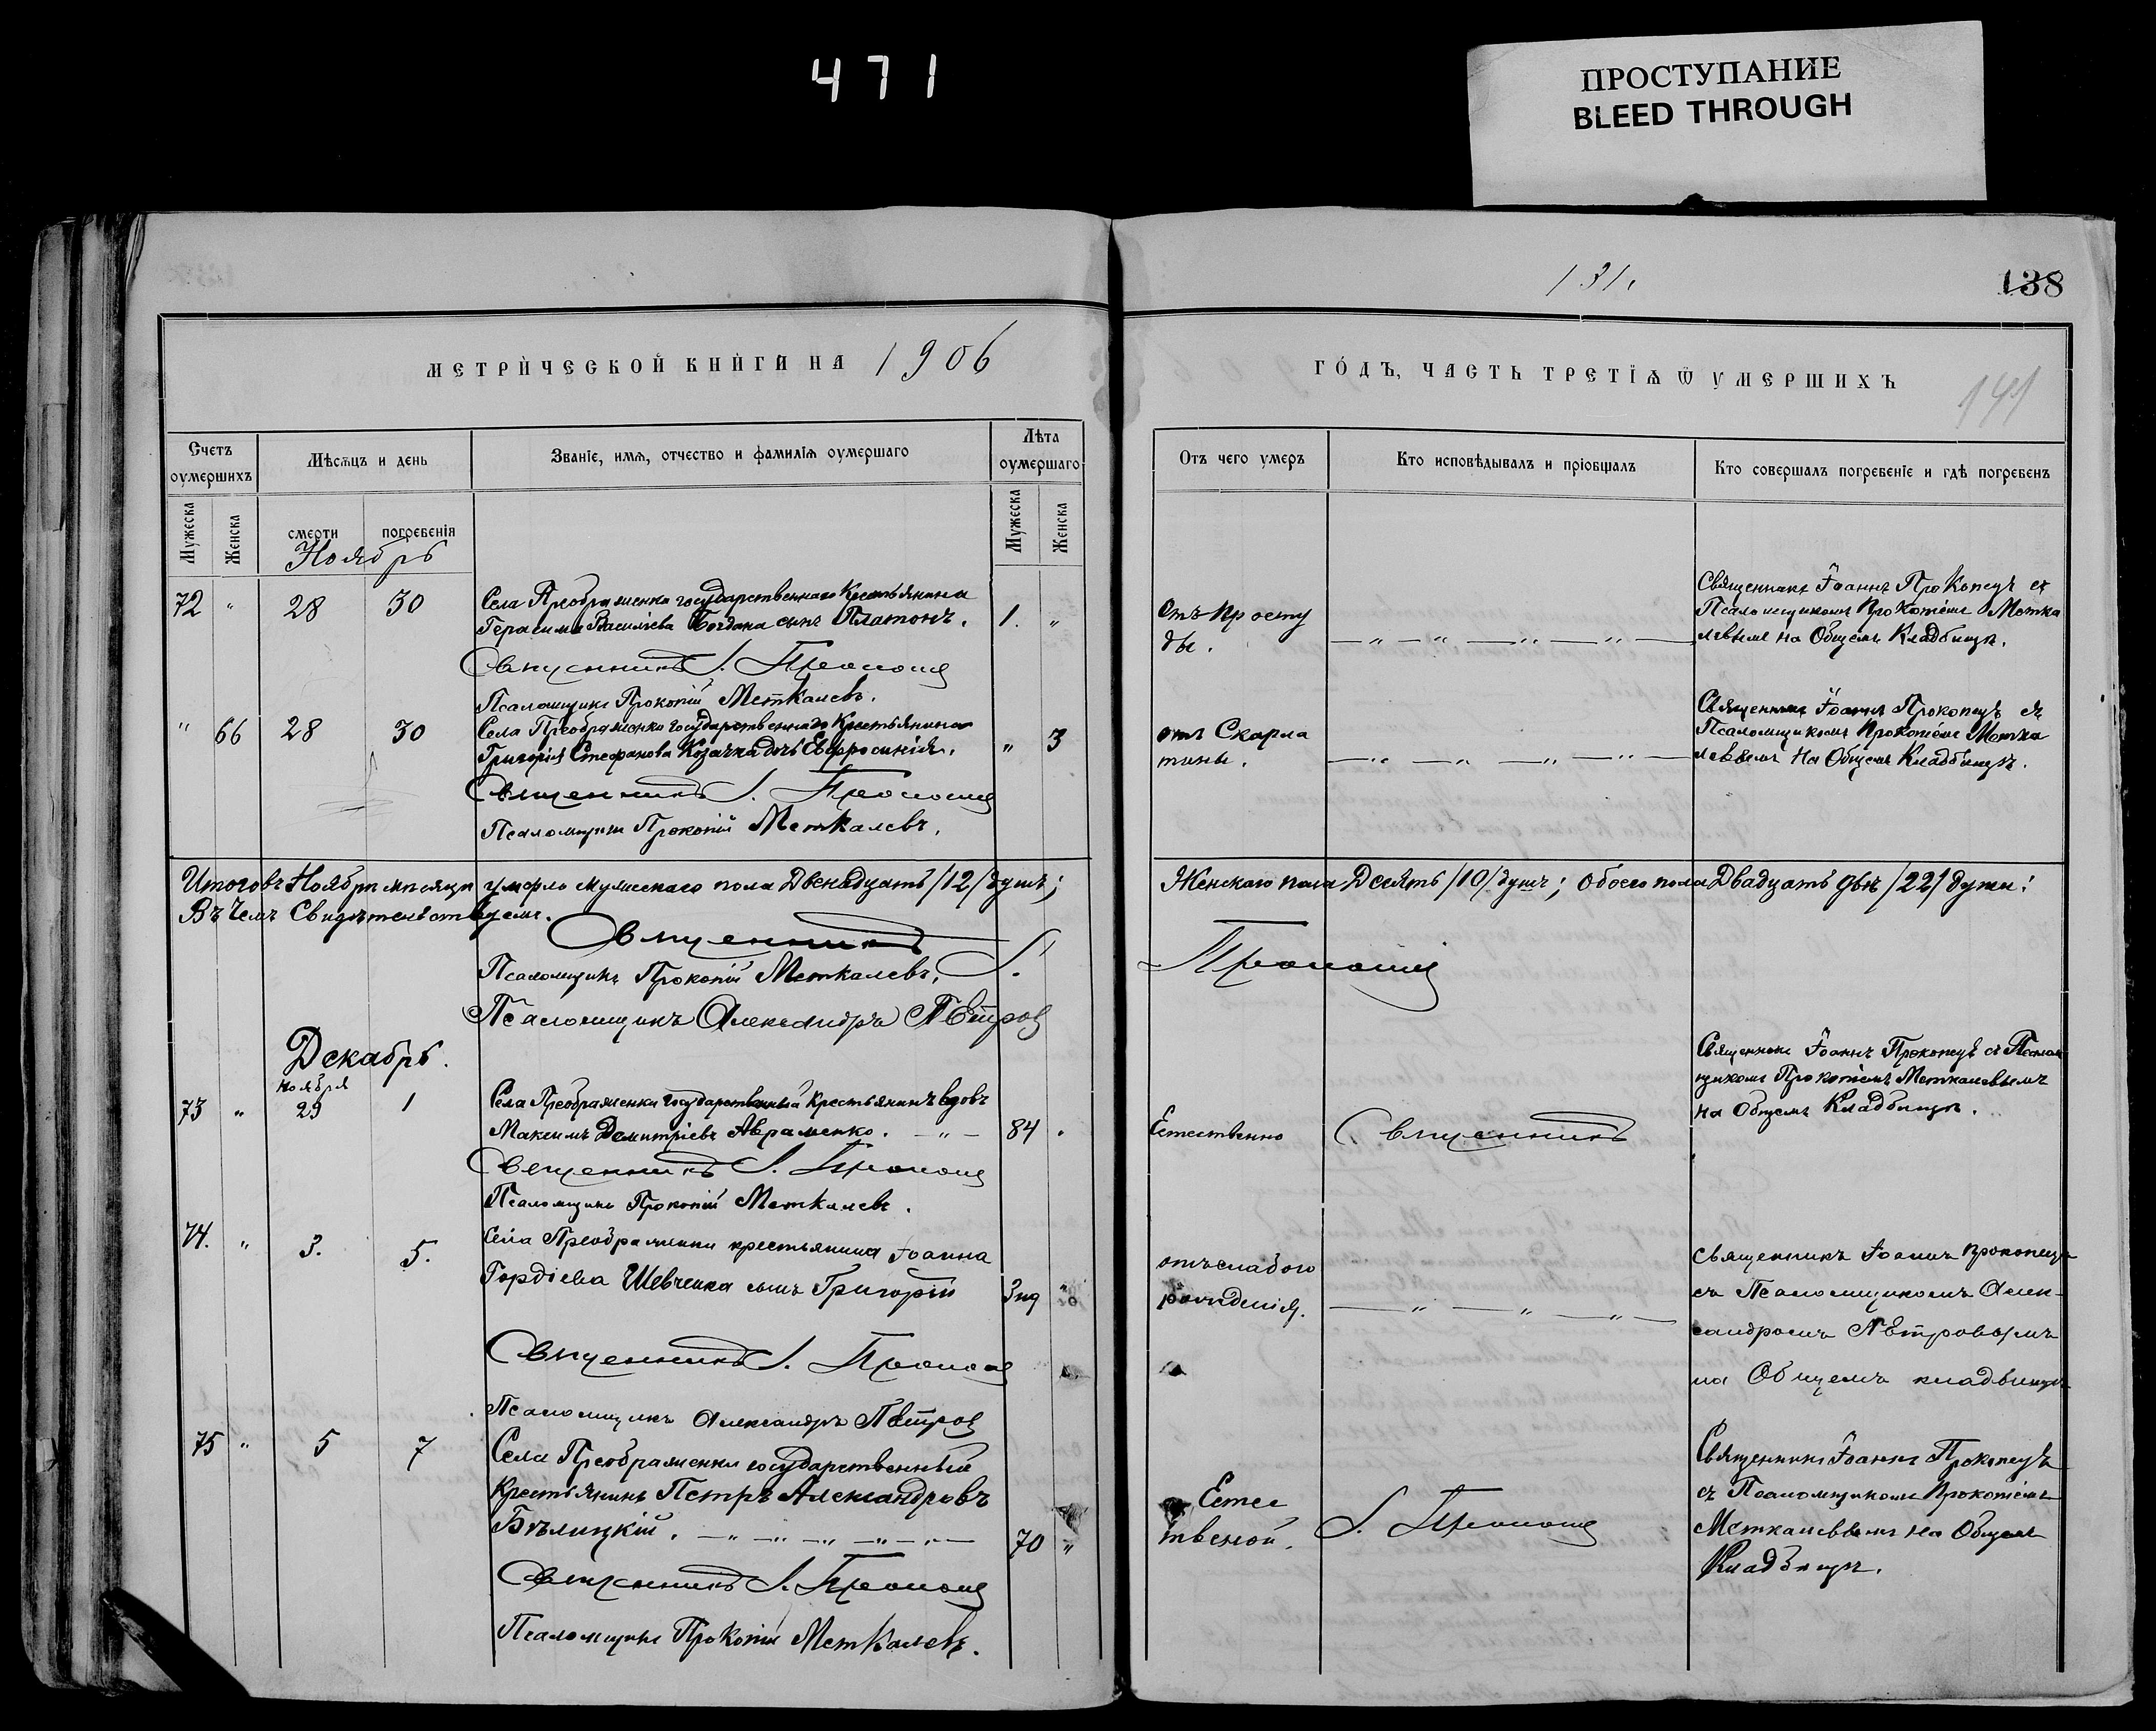 471
ПРОСТУПАНИЕ
BLEED THROUGH
131.
138
МЕТРИ́ЧЕСКОЙ КНИ́ГИ НА 1906
ГО́ДЪ, ЧАСТЬ ТРЕТІѦ Ѿ УМЕРШИХЪ
141
Счетъ оумершихъ
Мѣсѧцъ и день
Званіе, имѧ, отчество и фамиліѧ оумершаго
Лѣта оумершаго
Отъ чего умеръ
Кто исповѣдывалъ и пріобщалъ
Кто совершалъ погребеніе и гдѣ погребенъ
Мужеска
Женска
смерти
погребенія
Мужеска
Женска
Ноябрь
72 " 28 30
Села Преображенки государственнаго Крестьянина
Герасима Василіева Богдана сынъ Платонъ. 1. "
Священникъ І. Прокопецъ
Псаломщикъ Прокопій Меткалевъ.
Отъ просту
ды.
Священникъ Іоаннъ Прокопецъ съ
Псаломщикомъ Прокопіемъ Метка
левымъ на Общемъ Кладбищѣ.
" 66 28 30
Села Преображенки государственнаго Крестьянина
Григорія Стефанова Козачка дочь Евфросинія. " 3
Священникъ І. Прокопецъ
Псаломщикъ Прокопій Меткалевъ.
отъ Скарла
тины.
Священникъ Іоаннъ Прокопецъ съ
Псаломщикомъ Прокопіемъ Метка
левымъ на Общемъ Кладбищѣ.
Итого въ Ноябрѣ мѣсяцѣ умерло мужескаго пола Двенадцать /12/ душъ;
Женскаго пола Десять /10/ душъ; обоего пола Двадцать двѣ /22/ души:
Въ чемъ Свидѣтельствуемъ.
Священникъ І. Прокопецъ
Псаломщикъ Прокопій Меткалевъ.
Псаломщикъ Александръ Петров
Декабрь.
73 " Ноября 29 1
Села Преображенки Государственный Крестьянинъ вдовъ
Максимъ Димитріевъ Авраменко. 84
Священникъ І. Прокопецъ
Псаломщикъ Прокопій Меткалевъ.
Естественно
Священникъ
Священникъ Іоаннъ Прокопецъ съ Псалом
щикомъ Прокопіемъ Меткалевымъ
на Общемъ Кладбищѣ.
74. " 3. 5.
Села Преображенки крестьянина Іоанна
Гордіева Шевченка сынъ Григорій 3 нд "
Священникъ І. Прокопецъ
Псаломщикъ Александръ Петров
отъ слабого
рожденія.
священникъ Іоаннъ Прокопецъ
съ Псаломщикомъ Алек-
сандромъ Петровымъ
на Общемъ кладбищѣ
75 " 5 7
Села Преображенки государственный
Крестьянинъ Петръ Александровъ
Бѣлицкій. 70 "
Священникъ І. Прокопецъ
Псаломщикъ Прокопій Меткалевъ.
Естес
твеной.
І. Прокопецъ
Священникъ Іоаннъ Прокопецъ
съ Псаломщикомъ Прокопіемъ
Меткалевымъ на Общемъ
Кладбищѣ.